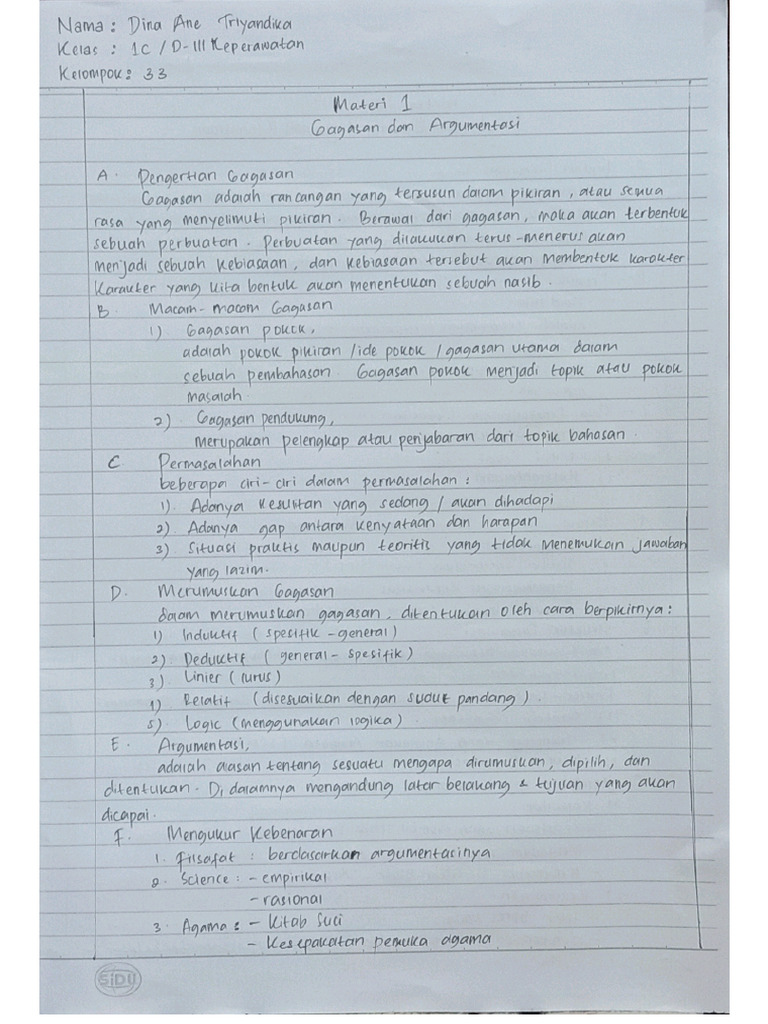 Nama : Dina Ane Triyandika
Kelas : 1C / D-III Keperawatan
Kelompok : 33
Materi 1
Gagasan dan Argumentasi
A. Pengertian Gagasan
Gagasan adalah rancangan yang tersusun dalam pikiran, atau semua
rasa yang menyelimuti pikiran. Berawal dari gagasan, maka akan terbentuk
sebuah perbuatan. Perbuatan yang dilakukan terus-menerus akan
menjadi sebuah kebiasaan, dan kebiasaan tersebut akan membentuk karakter
karakter yang kita bentuk akan menentukan sebuah nasib.
B. Macam-macam Gagasan
1) Gagasan pokok,
adalah pokok pikiran / ide pokok / gagasan utama dalam
sebuah pembahasan. Gagasan pokok menjadi topik atau pokok
masalah.
2). Gagasan pendukung,
merupakan pelengkap atau penjabaran dari topik bahasan.
C Permasalahan
beberapa ciri-ciri dalam permasalahan :
1). Adanya kesulitan yang sedang / akan dihadapi
2) Adanya gap antara kenyataan dan harapan
3) Situasi praktis maupun teoritis yang tidak menemukan jawaban
yang lazim.
D. Merumuskan Gagasan
dalam merumuskan gagasan, ditentukan oleh cara berpikirnya :
1) Induktif (spesifik - general)
2) Deduktif (general - spesifik)
3) Linier (lurus)
1) Relatif (disesuaikan dengan sudut pandang).
5) Logic (menggunakan logika).
E. Argumentasi,
adalah alasan tentang sesuatu mengapa dirumuskan, dipilih, dan
ditentukan. Di dalamnya mengandung latar belakang & tujuan yang akan
dicapai.
F. Mengukur Kebenaran
1. Filsafat : berdasarkan argumentasinya
2. Science : - empirikal
- rasional
3. Agama : - Kitab Suci
- Kesepakatan pemuka agama
SiDU